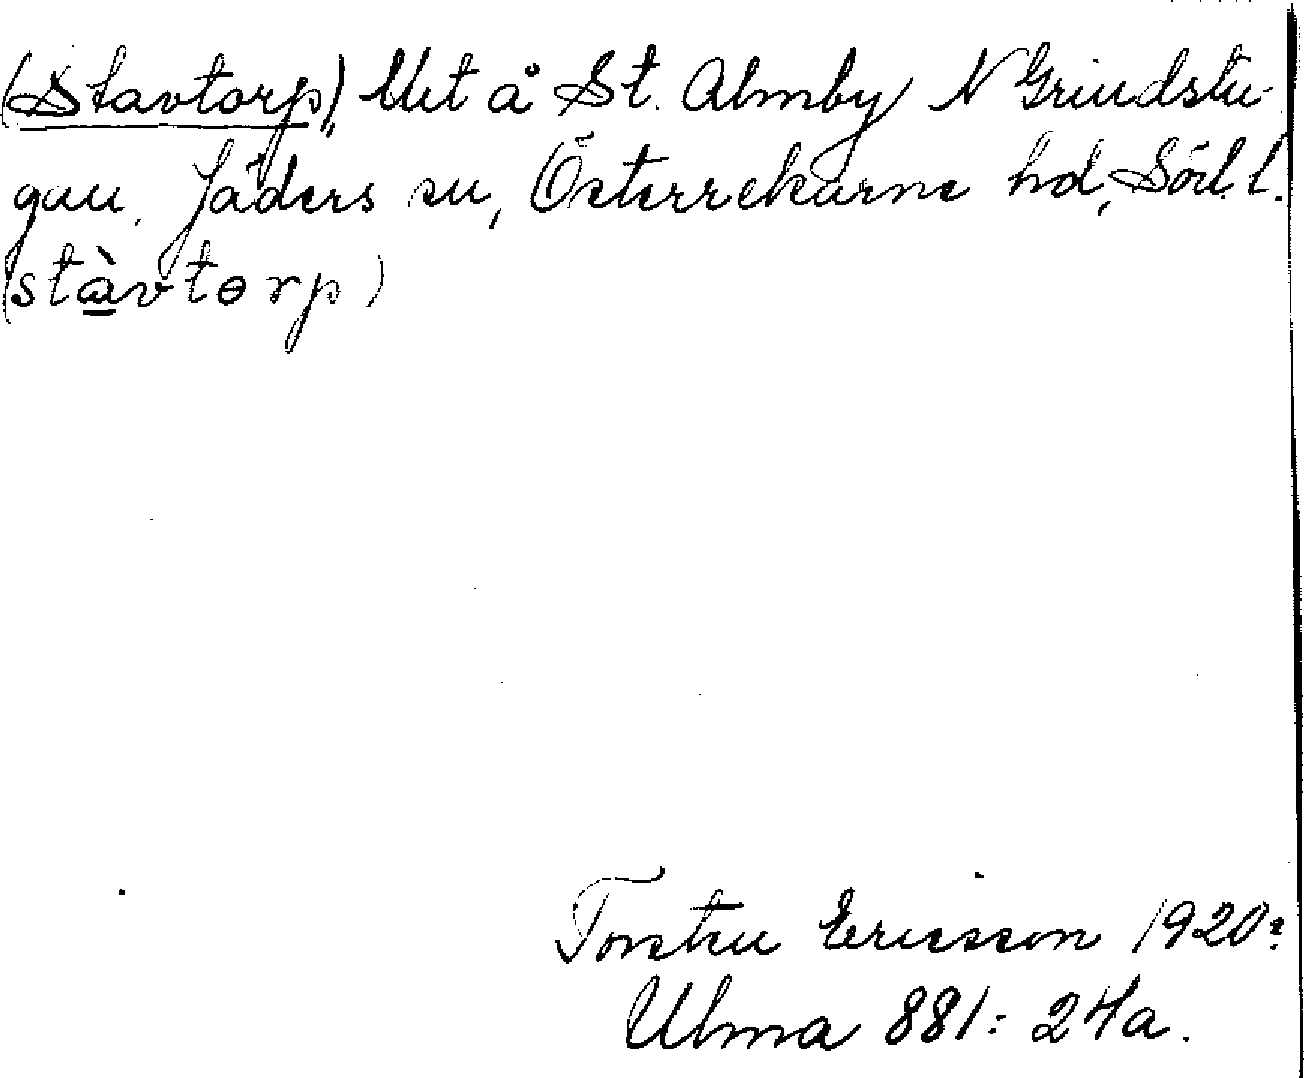 (Stavtorp), Utet å St. Almby N Grindstu-
gan. Jäders sn, Österrekarne hd, Södl.
(stàvtɵrp)
Torsten Ericsson 1920?
Ulma 881: 24a.